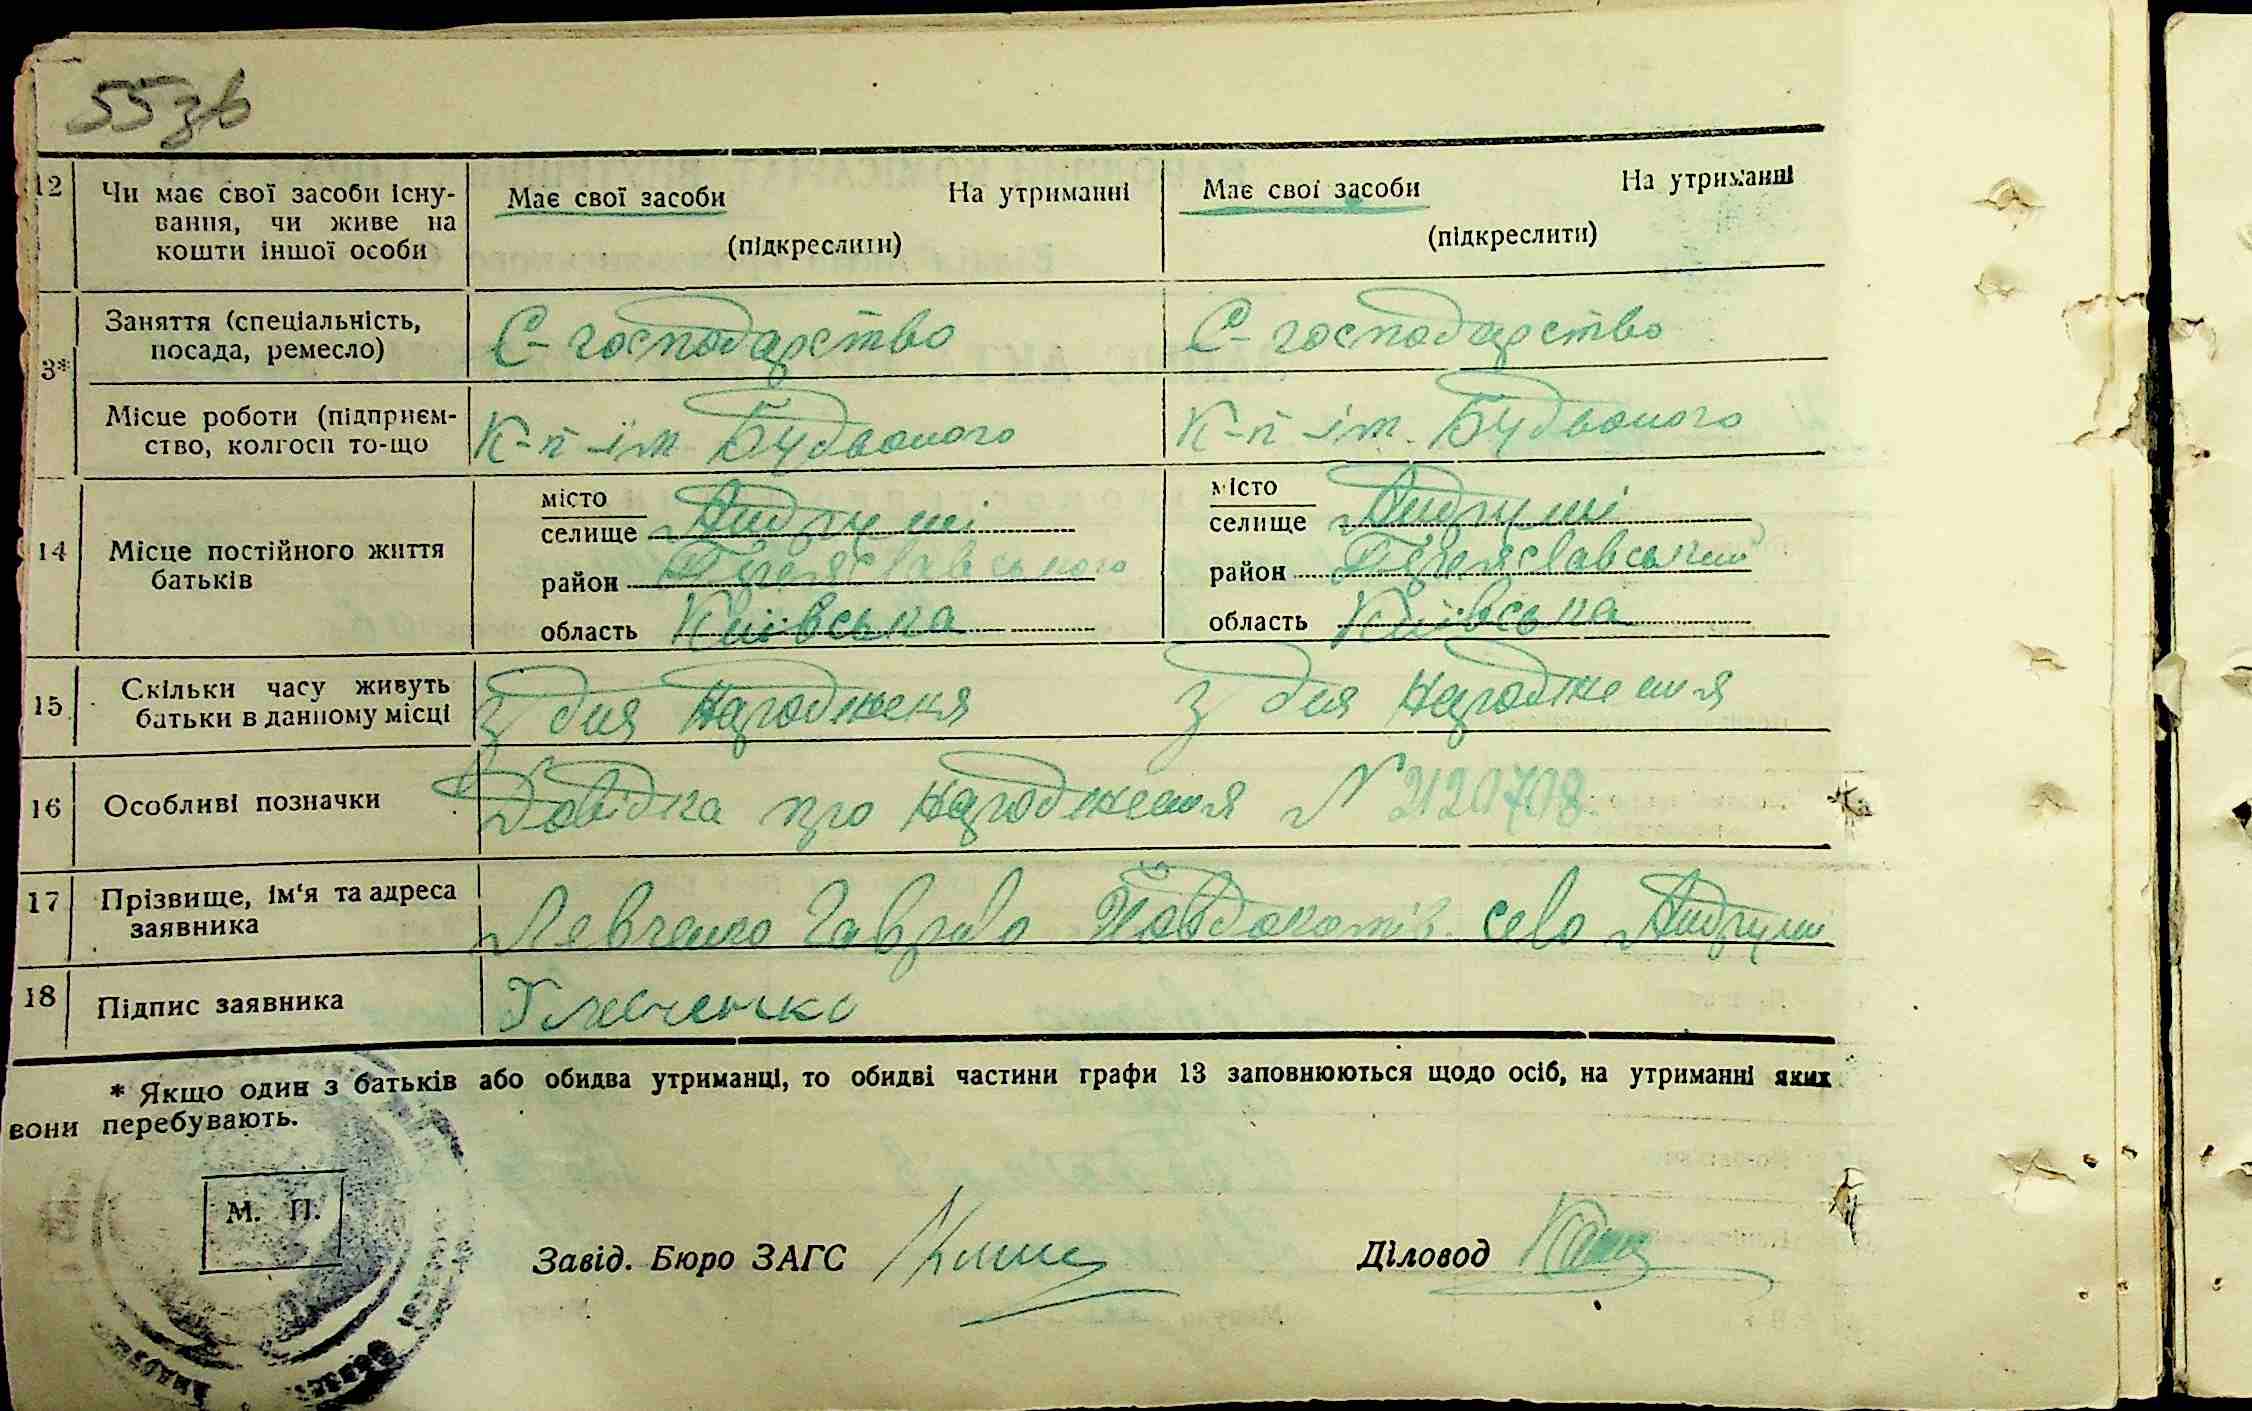 55зв
12 Чи має свої засоби існу- Має свої засоби На утриманні Має свої засоби На утриманні
вання, чи живе на
кошти іншої особи (підкреслити) (підкреслити)
3* Заняття (спеціальність, С-господарство С-господарство
посада, ремесло)
Місце роботи (підприєм- К-п ім Будьоного К-п ім. Будьоного
ство, колгосп то-що
14 Місце постійного життя батьків
місто місто
селище Андруші селище Андруші
район Переяславського район Переяславський
область Київська область Київська
15 Скільки часу живуть з дня народження з дня народження
батьки в данному місці
16 Особливі позначки Довідка про народження № 2120708
17 Прізвище, ім'я та адреса Левченко Гаврило село Андруші
заявника
18 Підпис заявника Глевченко
* Якщо один з батьків або обидва утриманці, то обидві частини графи 13 заповнюються щодо осіб, на утриманні яких
вони перебувають.
М. П.
Завід. Бюро ЗАГС Діловод